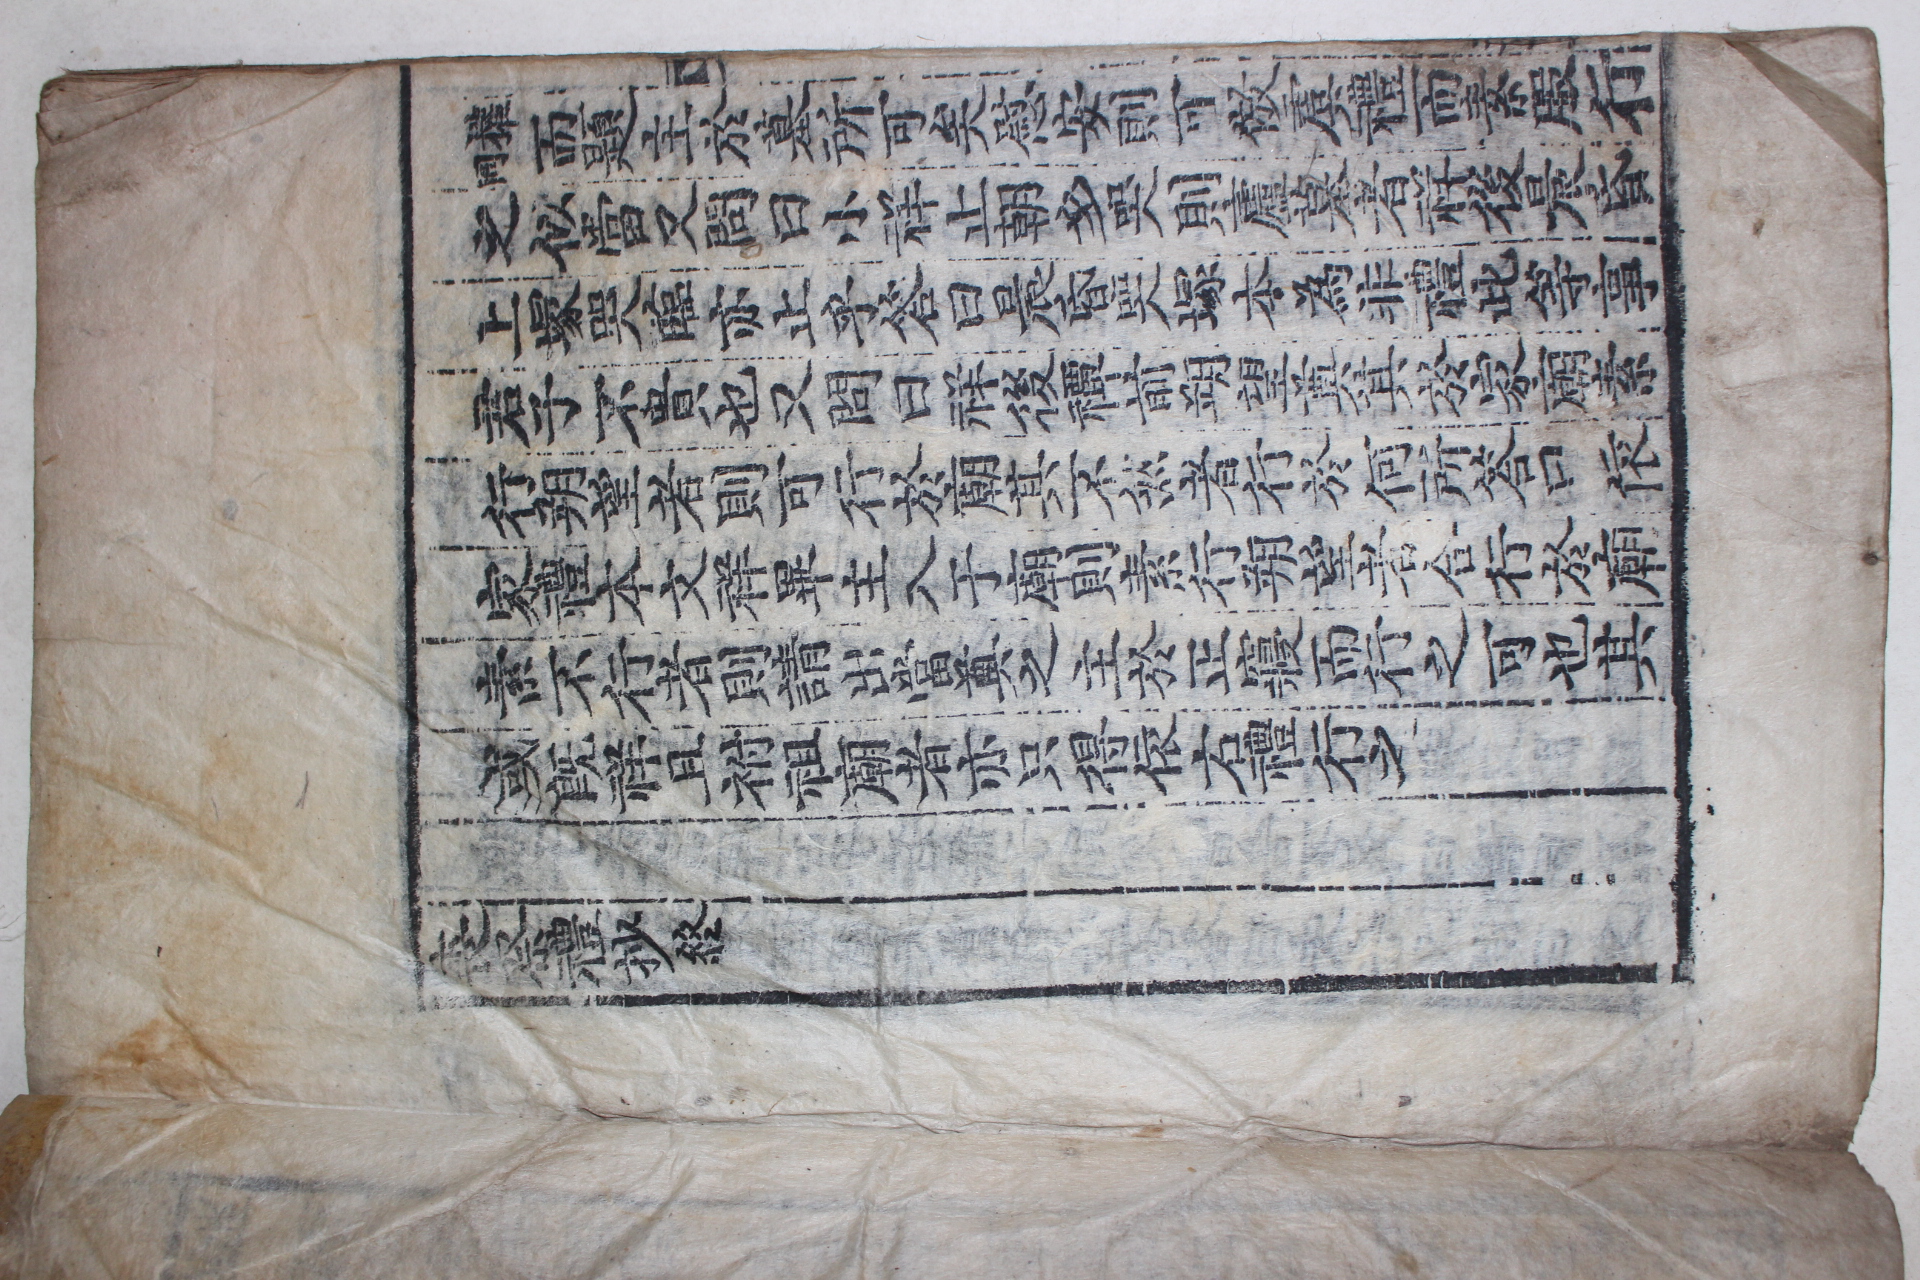 而題主於墓所可矣慰安則可倣虞禮而素嚴行
之似當又問曰小祥止朝夕哭則廬墓者祥後晨昏
上塚哭臨亦止乎答曰晨昏哭塚本為非禮此等事
君子不貴也又問曰祥後禫前朔望奠其於家廟素
行朔望者則可行於廟其不然者行於何所答曰依
家禮本文祥畢主入于廟則素行朔望者合行於廟
素不行者則請出當奠之主於正寢而行之可也其
或旣祥且祔祖廟者亦只得依右禮行之
喪祭禮抄終